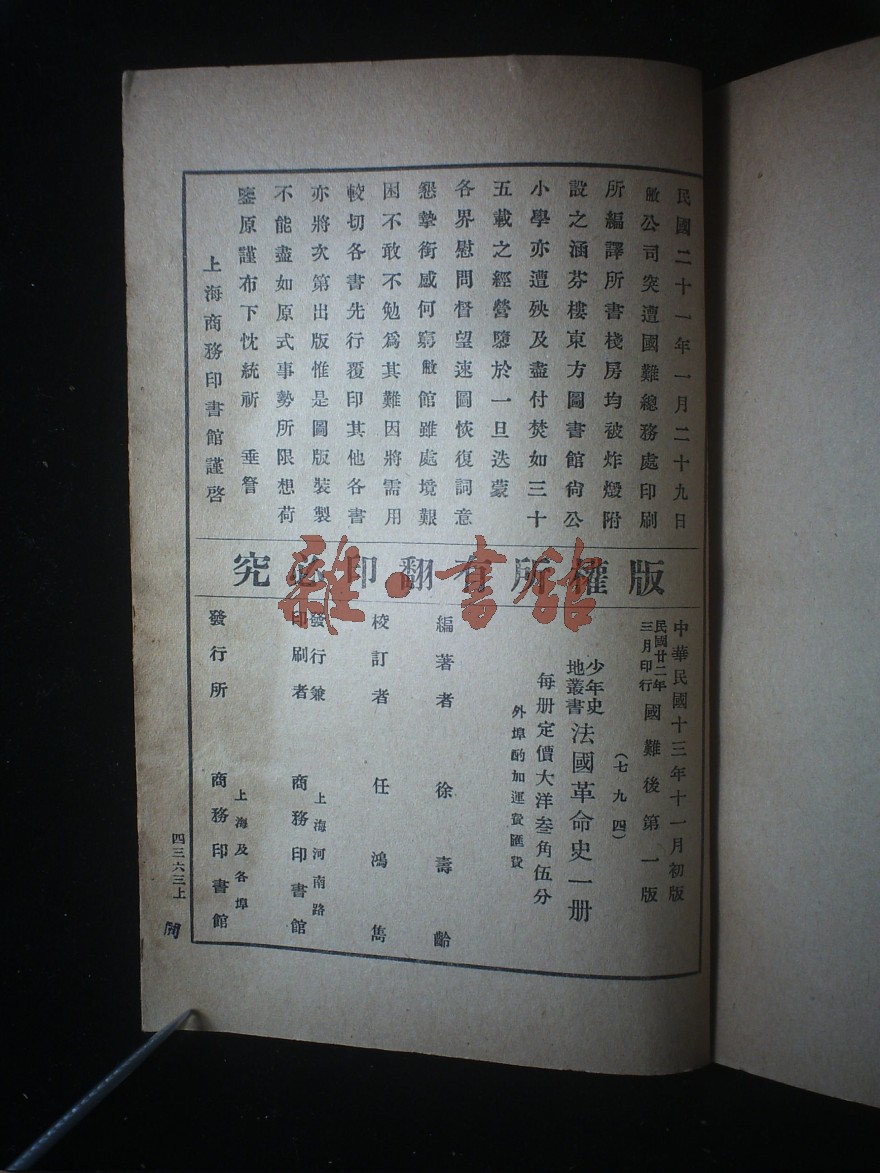 民國二十一年一月二十九日
敝公司突遭國難總務處印刷
所編譯所書棧房均被炸燬附
設之涵芬樓東方圖書館尙公
小學亦遭殃及盡付焚如三十
五載之經營隳於一旦迭蒙
各界慰問督望速圖恢復詞意
懇摯銜感何窮敝館雖處境艱
困不敢不勉爲其難因將需用
較切各書先行覆印其他各書
亦將次第出版惟是圖版裝製
不能盡如原式事勢所限想荷
鑒原謹布下忱統祈 垂詧
上海商務印書館謹啓
版權所有翻印必究
中華民國十三年十一月初版
民國廿二年三月印行 國難後第一版
(七九四)
少年史地叢書 法國革命史一册
每册定價大洋叁角伍分
外埠酌加運費匯費
編著者 徐壽齡
校訂者 任鴻雋
發行兼印刷者 上海河南路 商務印書館
發行所 上海及各埠 商務印書館
四三六三上
雜·書館